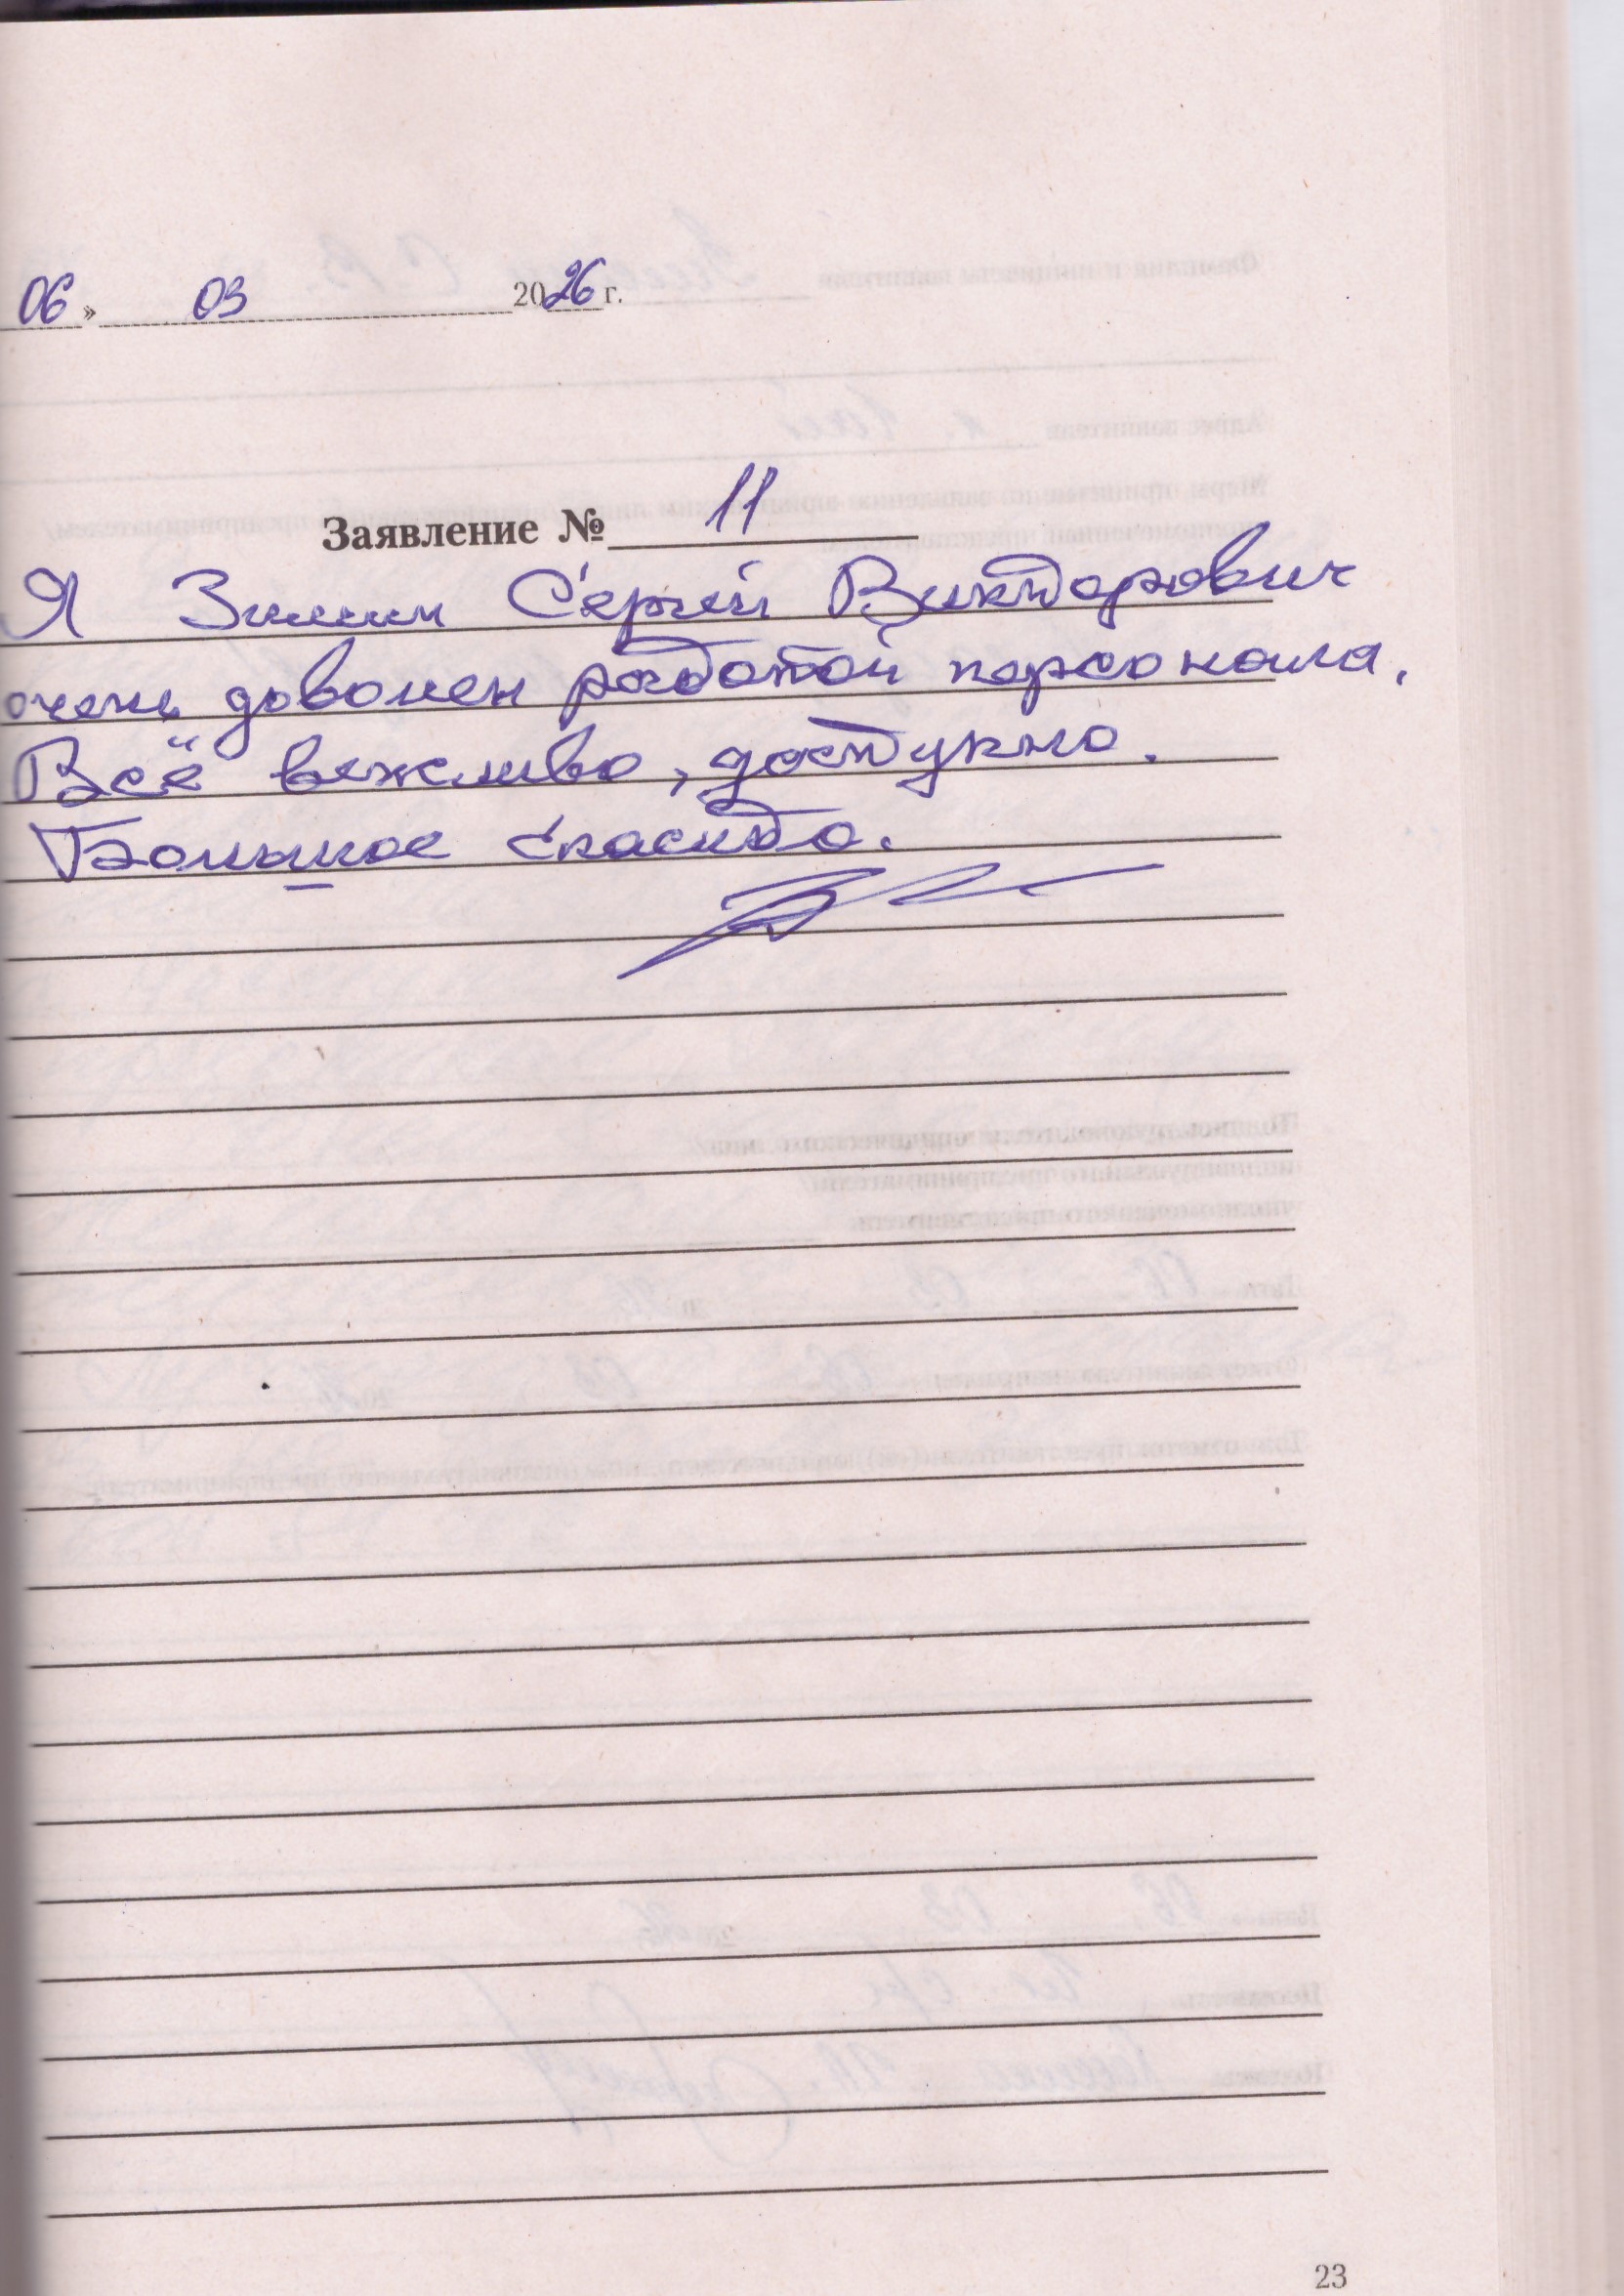 06 » 03 2026 г.
Заявление № 11
Я Зимин Сергей Викторович
очень доволен работой персонала.
Всё вежливо, доступно.
Большое спасибо.
23